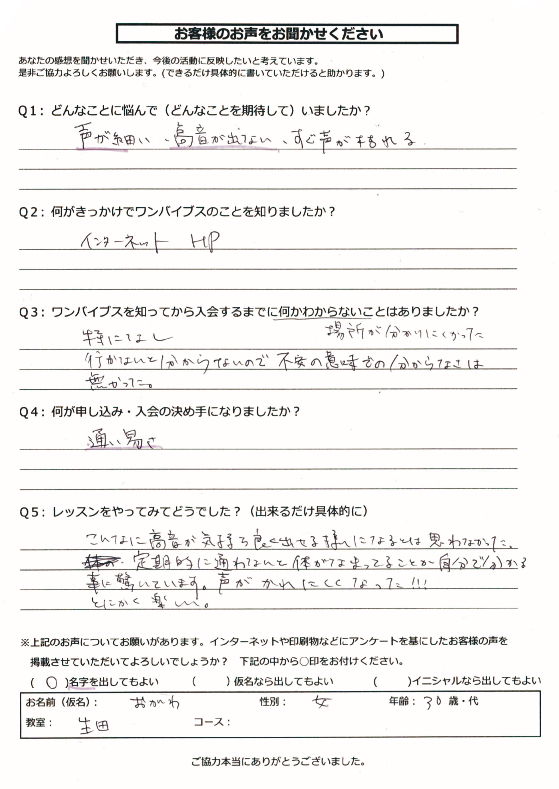 お客様のお声をお聞かせください
あなたの感想を聞かせいただき、今後の活動に反映したいと考えています。
是非ご協力よろしくお願いします。(できるだけ具体的に書いていただけると助かります。)
Q1：どんなことに悩んで（どんなことを期待して）いましたか？
声が細い、高音が出ない、すぐ声が枯れる
Q2：何がきっかけでワンバイブスのことを知りましたか？
インターネット HP
Q3：ワンバイブスを知ってから入会するまでに何かわからないことはありましたか？
特になし 場所が分かりにくかった
行かないと分からないので不安の意味での分からなさは
無かった。
Q4：何が申し込み・入会の決め手になりましたか？
通い易さ
Q5：レッスンをやってみてどうでした？（出来るだけ具体的に）
こんなに高音が気持ち良く出せる様になるとは思わなかった。
定期的に通わないと体がなまってることが自分で分かる
事に驚いています。声がかれにくくなった!!!
とにかく楽しい。
※上記のお声についてお願いがあります。インターネットや印刷物などにアンケートを基にしたお客様の声を
掲載させていただいてよろしいでしょうか？ 下記の中から〇印をお付けください。
( 〇 )名字を出してもよい ( )仮名なら出してもよい ( )イニシャルなら出してもよい
お名前（仮名）： おがわ 性別： 女 年齢： 30 歳・代
教室： 生田 コース：
ご協力本当にありがとうございました。